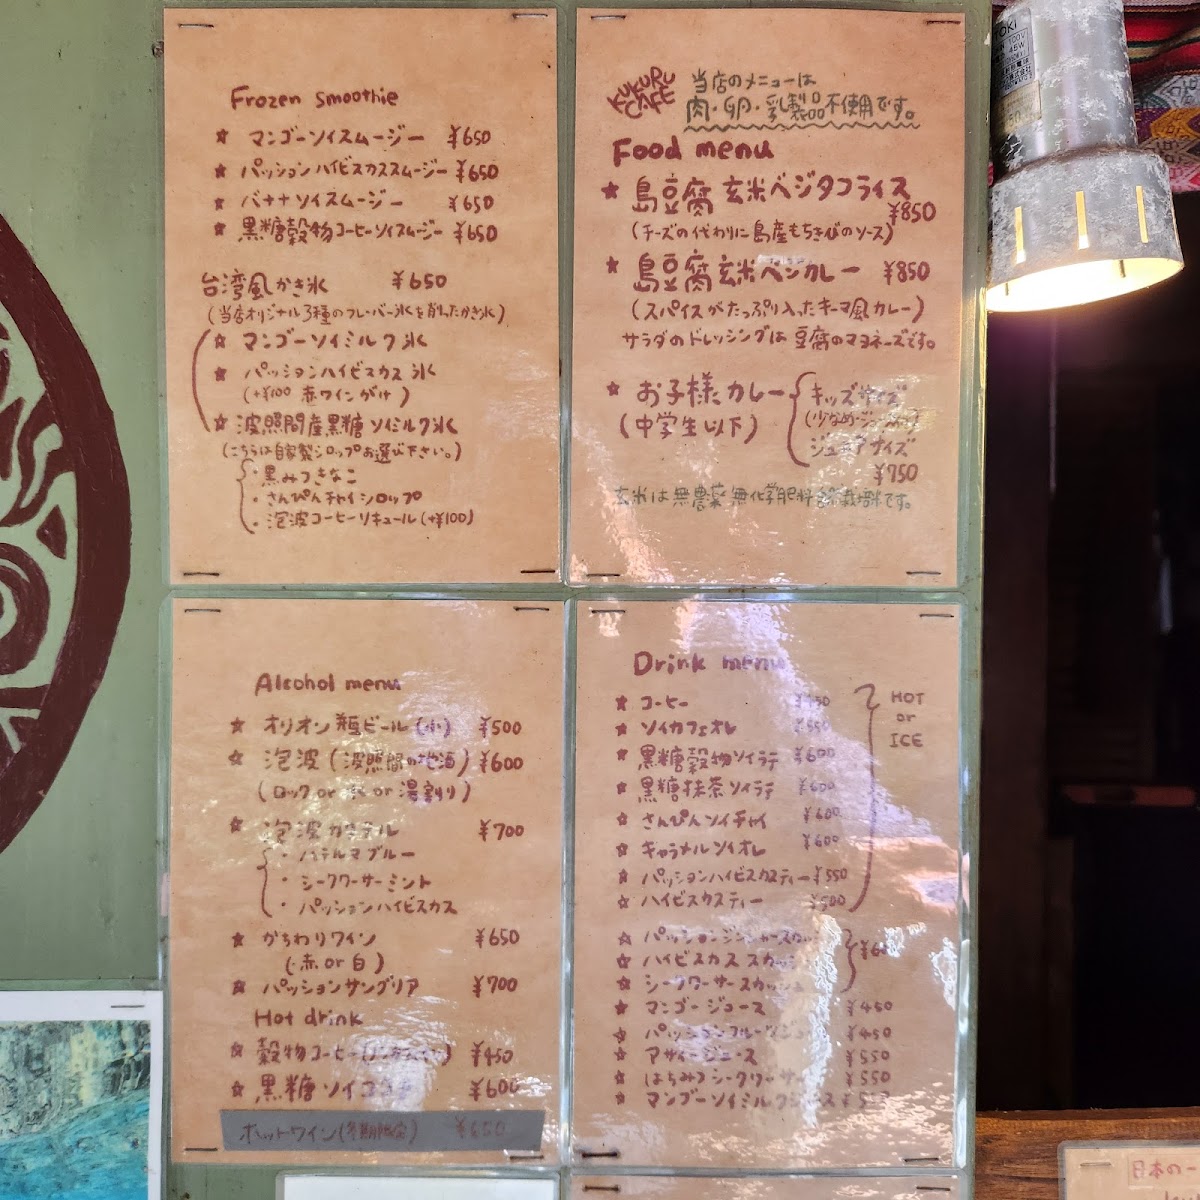 Frozen smoothie
★ マンゴーソイスムージー ¥650
★ パッションハイビスカススムージー ¥650
★ バナナソイスムージー ¥650
★ 黒糖穀物コーヒーソイスムージー ¥650
台湾風かき氷 ¥650
(当店オリジナル3種のフレーバー氷を削ったかき氷)
★ マンゴーソイミルク氷
★ パッションハイビスカス氷
(+¥100 赤ワインがけ)
★ 波照間産黒糖ソイミルク氷
(こちらは自家製シロップお選び下さい。)
・黒みつきなこ
・さんぴんチャイシロップ
・泡波コーヒーリキュール(+¥100)
KUKURU CAFE
当店のメニューは
肉・卵・乳製品不使用です。
Food menu
★ 島豆腐玄米ベジタコライス
¥850
(チーズの代わりに島産もちきびのソース)
★ 島豆腐玄米ベジカレー ¥850
(スパイスがたっぷり入ったキーマ風カレー)
サラダのドレッシングは豆腐のマヨネーズです。
★ お子様カレー キッズサイズ
(中学生以下) (少なめ
ジュニアサイズ
¥750
玄米は無農薬無化学肥料栽培米です。
Alcohol menu
★ オリオン瓶ビール(小) ¥500
★ 泡波(波照間の地酒) ¥600
(ロック or 水 or 湯割り)
★ 泡波カクテル ¥700
・ハテルマブルー
・シークワーサーミント
・パッションハイビスカス
★ かちわりワイン ¥650
(赤 or 白)
★ パッションサングリア ¥700
Hot drink
★ 穀物コーヒー ¥450
★ 黒糖ソイココア ¥600
ホットワイン(冬期限定) ¥650
Drink menu
★ コーヒー ¥450 HOT
★ ソイカフェオレ ¥550 or
★ 黒糖穀物ソイラテ ¥600 ICE
★ 黒糖抹茶ソイラテ ¥600
★ さんぴんソイチャイ ¥600
★ キャラメルソイオレ ¥600
★ パッションハイビスカスティー ¥550
★ ハイビスカスティー ¥500
★ パッションジンジャースカッシュ
★ ハイビスカススカッシュ
★ シークワーサースカッシュ
★ マンゴージュース ¥450
★ パッションフルーツジュース ¥450
★ アサイージュース ¥550
★ はちみつシークワーサー ¥550
★ マンゴーソイミルクジュース
TOKI
100V
45W
日本の